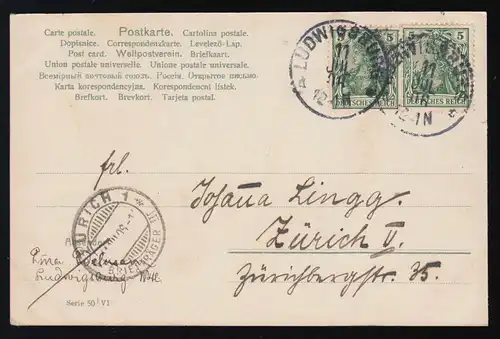 Carte postale. Postkarte. Cartolina postale.
Dopisnice. Correspondenzkarte. Levelező-Lap.
Post card. Weltpostverein. Briefkaart.
Union postale universelle. Unione postale universale.
Всемірный почтовый союзъ. Россія. Открытое письмо.
Karta korespondencyjna. Korespondenční lístek.
Brefkort. Brevkort. Tarjeta postal.
5 5
LUDWIGSBURG
11
12-1N
DEUTSCHES REICH DEUTSCHES REICH
frl.
Johana Lingg.
Zürich V.
Zürichbergstr. 35.
ZÜRICH 1
BRIEFTRÄGER
Ludwigsburg
Serie 50 VI